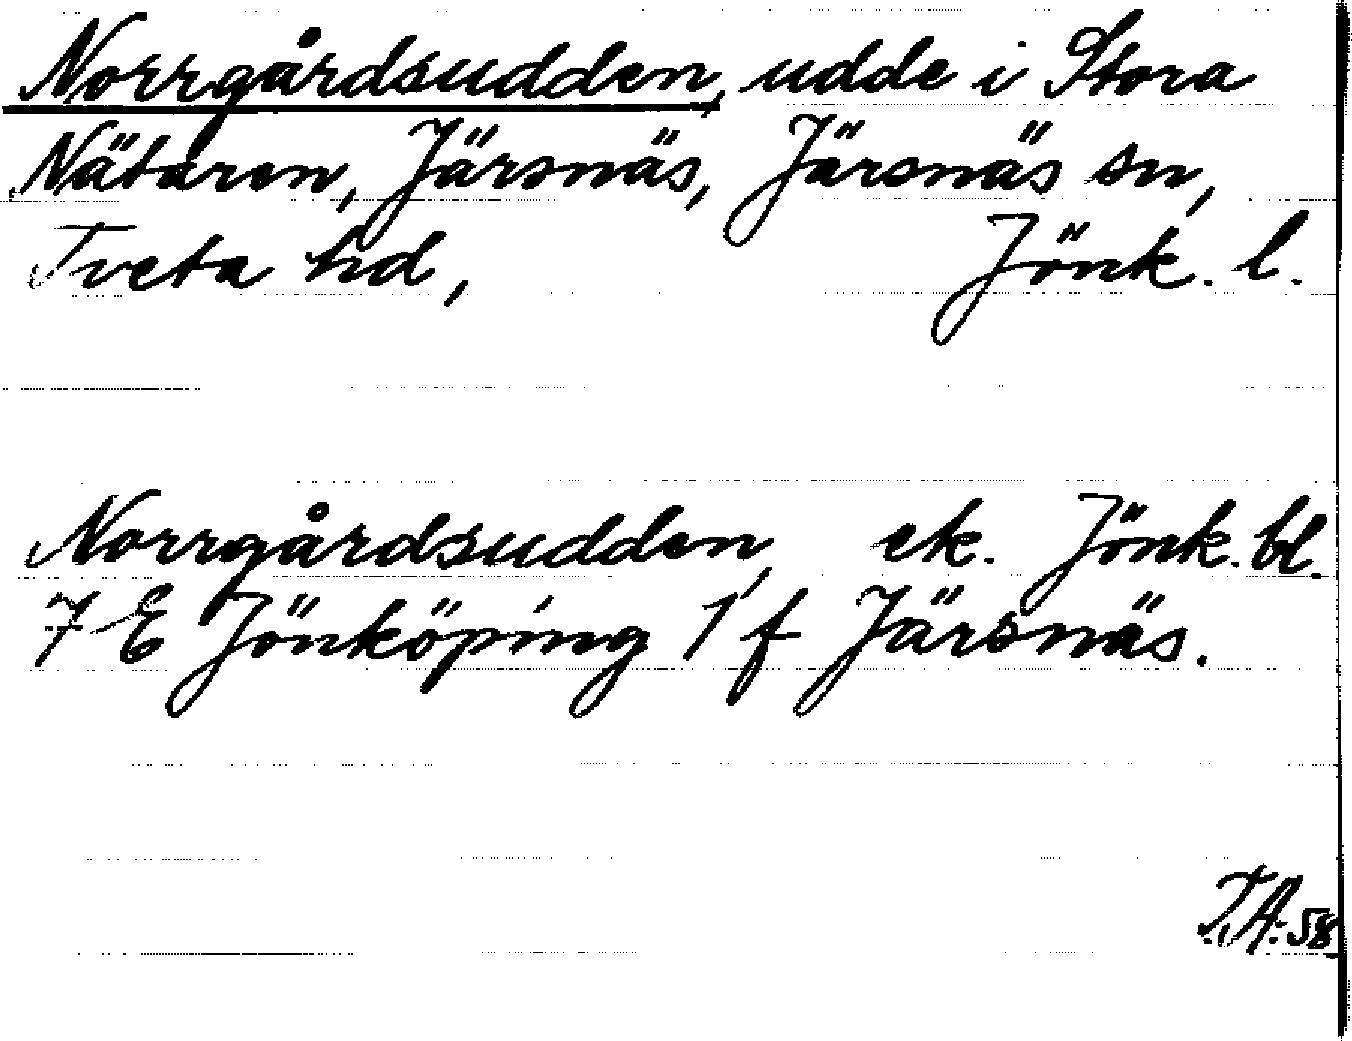 Norrgårdsudden, udde i Stora
Nätaren, Järsnäs, Järsnäs sn,
Tveta hd, Jönk. l.
Norrgårdsudden, ek. Jönk. bl.
7 E Jönköping 1 f Järsnäs.
T.A. 58